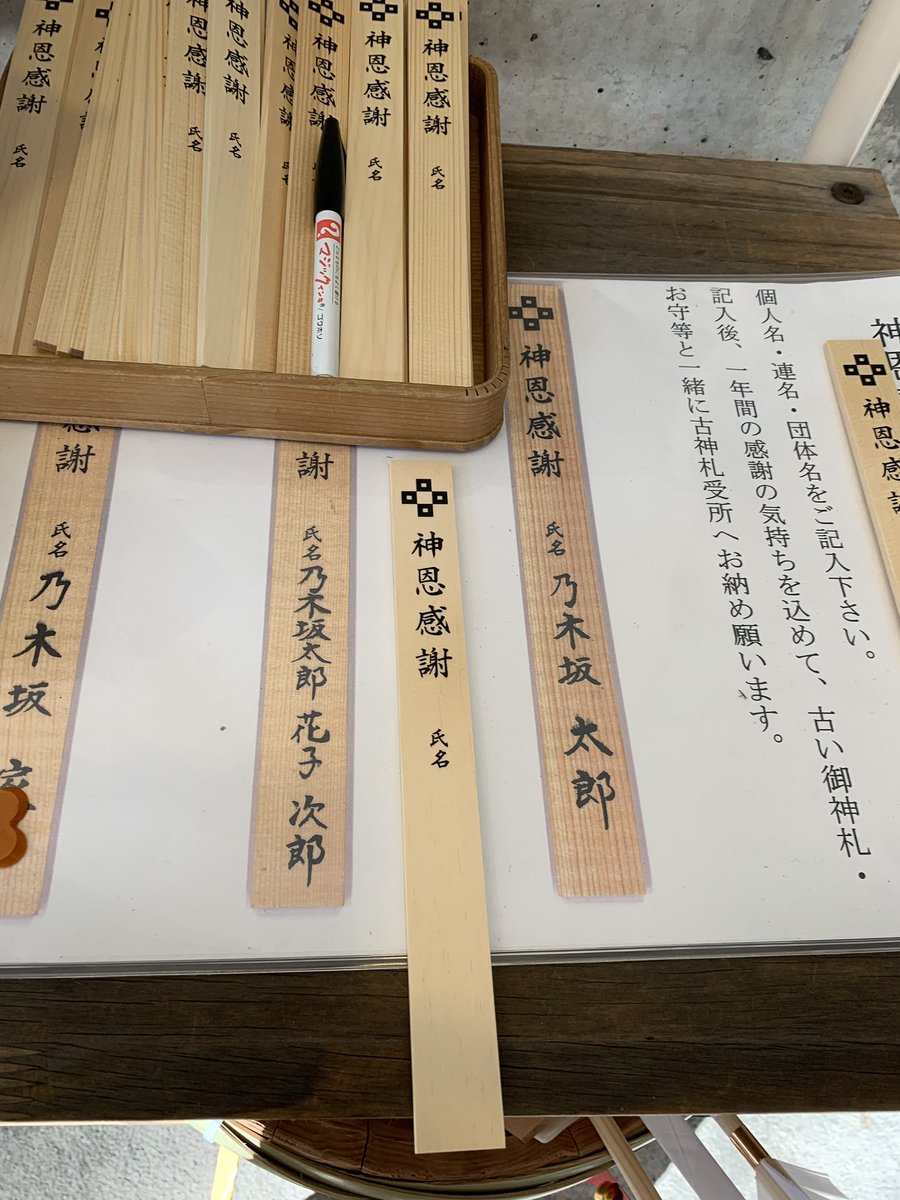 神恩感謝
氏名
神恩感謝
氏名
神恩感謝
氏名
神恩感謝
氏名
神恩感謝
神恩感謝
神恩感謝
氏名
神恩感謝
氏名
マジックインキ
神恩
神恩感謝
個人名・連名・団体名をご記入下さい。
記入後、一年間の感謝の気持ちを込めて、古い御神札・
お守等と一緒に古神札受所へお納め願います。
神恩感謝
氏名 乃木坂 太郎
神恩感謝
氏名
謝
氏名 乃木坂太郎 花子 次郎
感謝
氏名 乃木坂